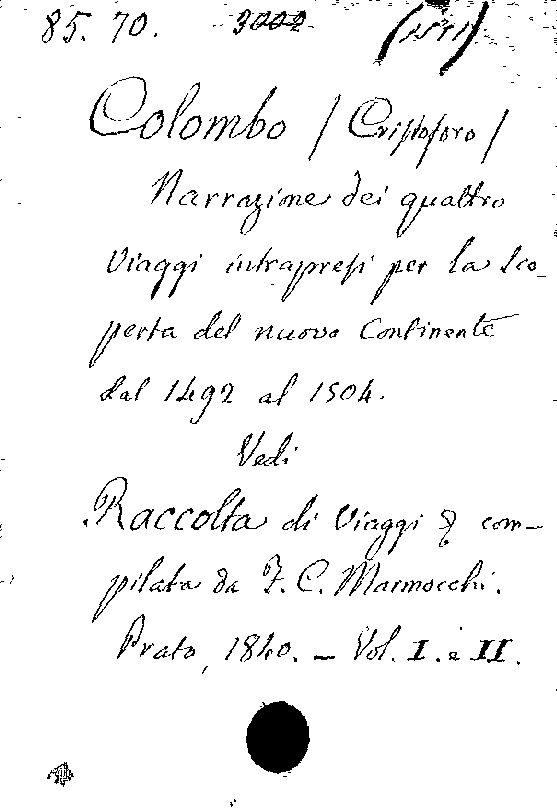 85. 70. 3002
Colombo / Cristoforo /
Narrazione dei quattro
Viaggi intrapresi per la Sco_
perta del nuovo Continente
dal 1492 al 1504.
Vedi
Raccolta di Viaggi & com_
pilata da F. C. Marmocchi.
Prato, 1840. _ Vol. I. e II.